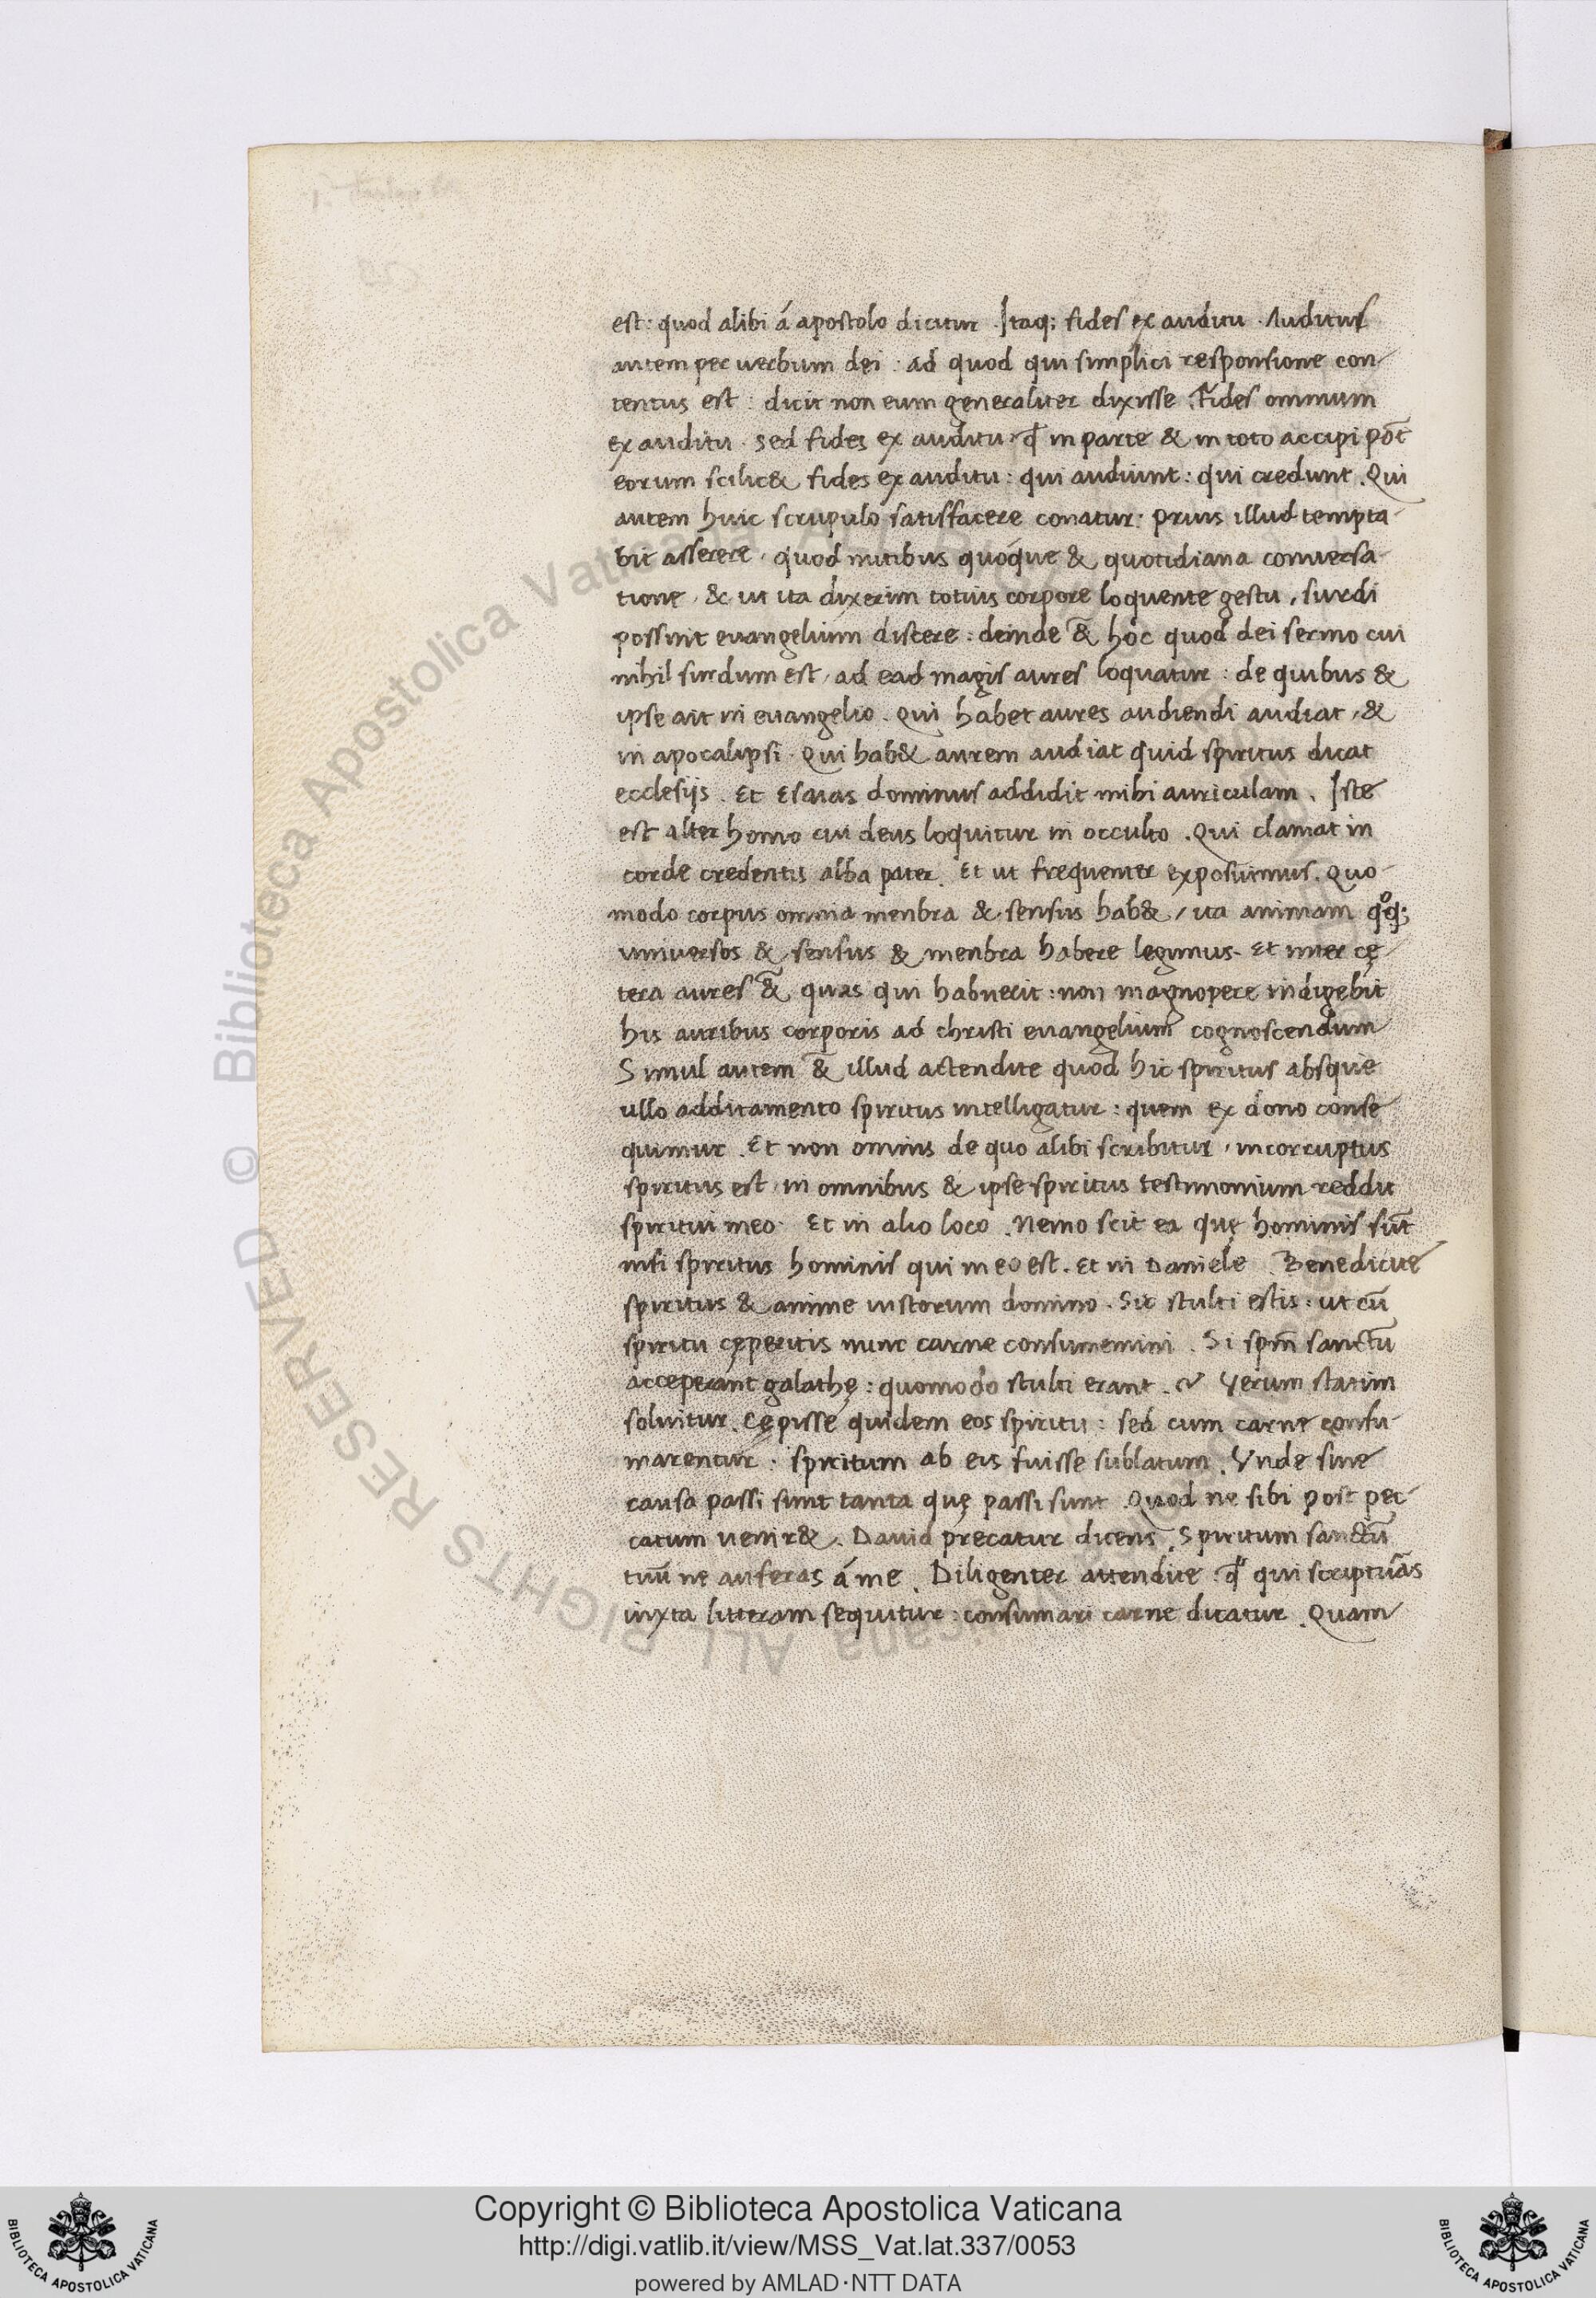 est: quod alibi á apostolo dicitur. Itaq; fides ex auditu. Auditus
autem per uerbum dei: ad quod qui simplici responsione con-
tentus est: dicit non eum generaliter dixisse. Fides omnium
ex auditu. sed fides ex auditu. q̄ in parte & in toto accipi pōt
eorum scilic& fides ex auditu: qui audiunt: qui credunt. Qui
autem huic scrupulo satisfacere conatur: prius illud tempta-
bit asserere, quod nutibus quoque & quotidiana conuersa-
tione, & ut ita dixerim totius corpore loquente gestu, surdi
possint euangelium discere: deinde & hoc quod dei sermo cui
nihil surdum est, ad ead magis aures loquatur: de quibus &
ipse ait in euangelio. Qui habet aures audiendi audiat, &
in apocalipsi. Qui hab& aurem audiat quid spiritus dicat
ecclesijs. Et Esaias dominus addidit mihi auriculam. Iste
est alter homo cui deus loquitur in occulto. Qui clamat in
corde credentis abba pater. Et ut frequenter exposuimus. Quo-
modo corpus omnia menbra & sensus hab&, ita animam qͦq;
uniuersos & sensus & menbra habere legimus. Et inter cę-
tera aures & quas qui habuerit: non magnopere indigebit
his auribus corporis ad christi euangelium cognoscendum
Simul autem & illud actendite quod hic spiritus absque
ullo additamento spiritus intelligatur: quem ex dono conse-
quimur. Et non ominis de quo alibi scribitur, incorruptus
spiritus est, in omnibus & ipse spiritus testimonium reddit
spiritui meo. Et in alio loco. Nemo scit ea quę hominis sūt
nisi spiritus hominis qui in eo est. Et in Daniele Benedicite
spiritus & anime iustorum domino. Sic stulti estis: ut cū
spiritu cęperitis nunc carne consumemini. Si spm̄ sanctū
acceperant galathę: quomodo stulti erant. Verum statim
soluitur. Cępisse quidem eos spiritu: sed cum carne consu-
marentur: spiritum ab eis fuisse sublatum. Vnde sine
causa passi sunt tanta quę passi sunt. Quod ne sibi post pec-
catum uenir&. Dauid precatur dicens. Spiritum sanctū
tuū ne auferas á me. Diligenter attendite: qui scripturas
iuxta litteram sequitur: consumari carne dicatur. Quam
© Biblioteca Apostolica Vaticana ALL RIGHTS RESERVED
Copyright © Biblioteca Apostolica Vaticana
http://digi.vatlib.it/view/MSS_Vat.lat.337/0053
powered by AMLAD·NTT DATA
BIBLIOTECA APOSTOLICA VATICANA
BIBLIOTECA APOSTOLICA VATICANA